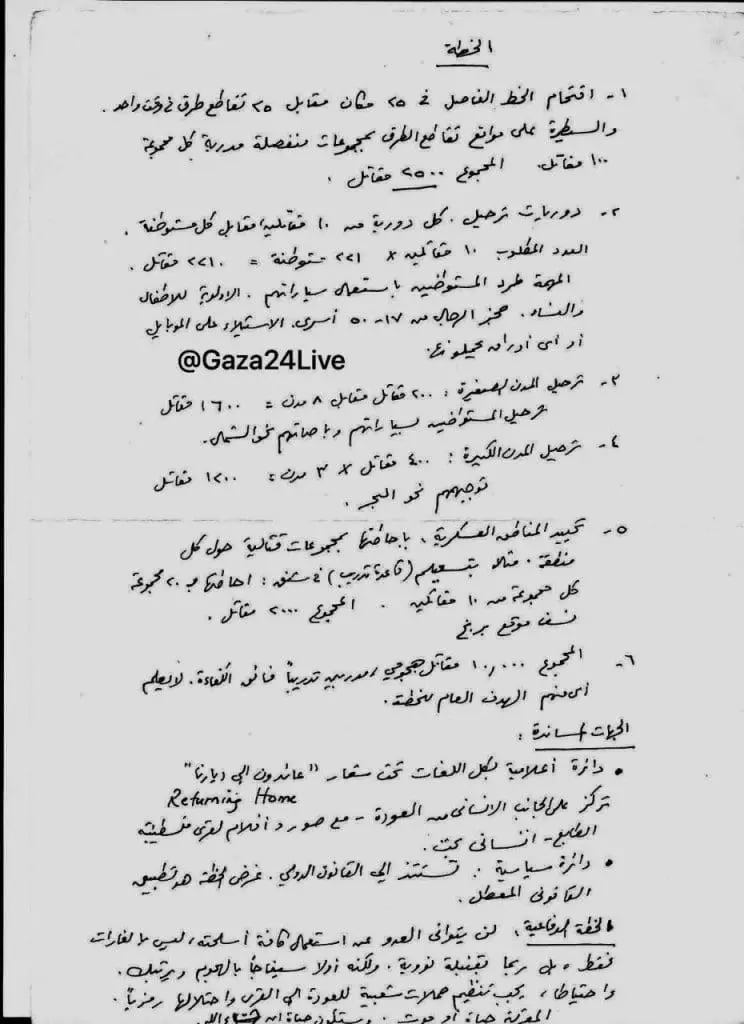 الخطة
١- اقتحام الخط الفاصل في ٢٥ مكان مقابل ٢٥ تقاطع طرق في وقت واحد .
والسيطرة على مواقع تقاطع الطرق بمجموعات منفصلة مدربة كل مجموعة
١٠٠ مقاتل. المجموع ٢٥٠٠ مقاتل .
٢- دوريات ترحيل . كل دورية من ١٠ مقاتلين مقابل كل مستوطنة .
العدد المطلوب ١٠ مقاتلين × ٢٢١ مستوطنة = ٢٢١٠ مقاتل .
المهمة طرد المستوطنين باستعمال سياراتهم . الاولوية للاطفال
والنساء . حجز الرجال من ١٧-٥٠ أسرى. الاستيلاء على الموبايل
أو أي أوراق يحملونها.
@Gaza24Live
٣- ترحيل المدن الصغيرة : ٢٠٠ مقاتل مقابل ٨ مدن = ١٦٠٠ مقاتل
ترحيل المستوطنين بسياراتهم وباصاتهم نحو الشمال.
٤- ترحيل المدن الكبيرة : ٤٠٠ مقاتل × ٣ مدن = ١٢٠٠ مقاتل
توجيههم نحو البحر .
٥- تحييد المناطق العسكرية ، باحاطتها بمجموعات قتالية حول كل
منطقة . مثلا (قاعدة تدريب) في : احاطتها بـ ٢٠ مجموعة
كل مجموعة من ١٠ مقاتلين . المجموع ٢٠٠٠ مقاتل .
نسف موقع
٦- المجموع ١٠,٠٠٠ مقاتل هجومي، مدربين تدريباً فائق الكفاءة . لا يعلم
أي منهم الهدف العام للخطة .
الجهات المساندة :
• دائرة أعلامية بكل اللغات تحت شعار "عائدون إلى ديارنا"
Returning Home
تركز على الجانب الانساني من العودة - مع صور وأفلام لقرى فلسطينية
الطابع - انساني بحت .
• دائرة سياسية : تستند إلى القانون الدولي . غرض الخطة هو تطبيق
القانون المعطل .
الخطة الدفاعية : لن يتوانى العدو عن استعمال كافة أسلحته ، ليس بالغارات
فقط ، بل ربما بقنبلة نووية . ولكنه أولا سيفاجأ بالهجوم ويرتبك .
واحتياطا ، يجب تنظيم حملات شعبية للعودة الى القرى واحتلالها رمزياً .
المعركة حياة أو موت . وستكون حياة ان شاء الله